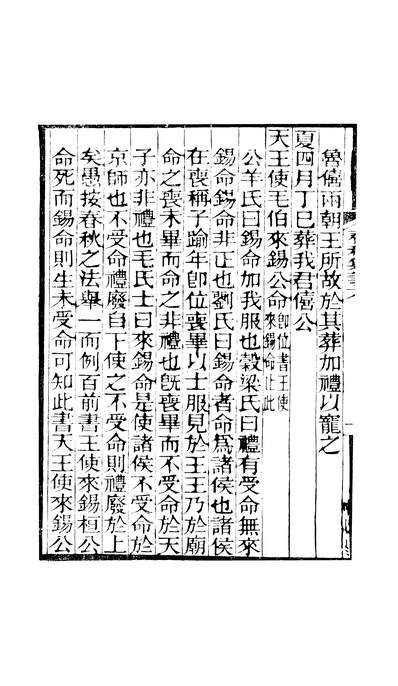 魯僖兩朝王所故於其葬加禮以寵之
夏四月丁巳葬我君僖公
天王使毛伯來錫公命卽位書王使來錫命止此
公羊氏曰錫命加我服也穀梁氏曰禮有受命無來
錫命錫命非正也劉氏曰錫命者命爲諸侯也諸侯
在喪稱子踰年卽位喪畢以士服見於王王乃於廟
命之喪未畢而命之非禮也旣喪畢而不受命於天
子亦非禮也毛氏士曰來錫命是使諸侯不受命於
京師也不受命禮廢自下使之不受命則禮廢於上
矣愚按春秋之法舉一而例百前書王使來錫桓公
命死而錫命則生未受命可知此書天王使來錫公